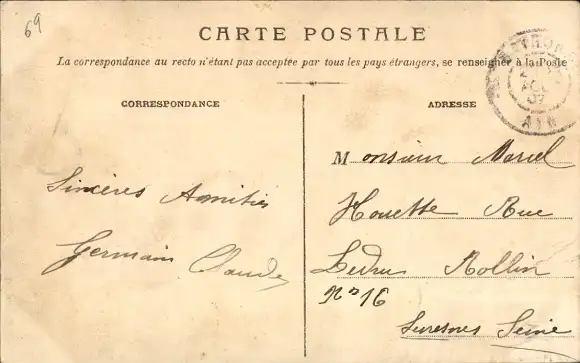 69
CARTE POSTALE
La correspondance au recto n'étant pas acceptée par tous les pays étrangers, se renseigner à la Poste
CORRESPONDANCE
Sincères Amitiés
Germain Claude
ADRESSE
Monsieur Marcel
Houette Rue
Ledru Rollin
N° 16
Suresnes Seine
AIN